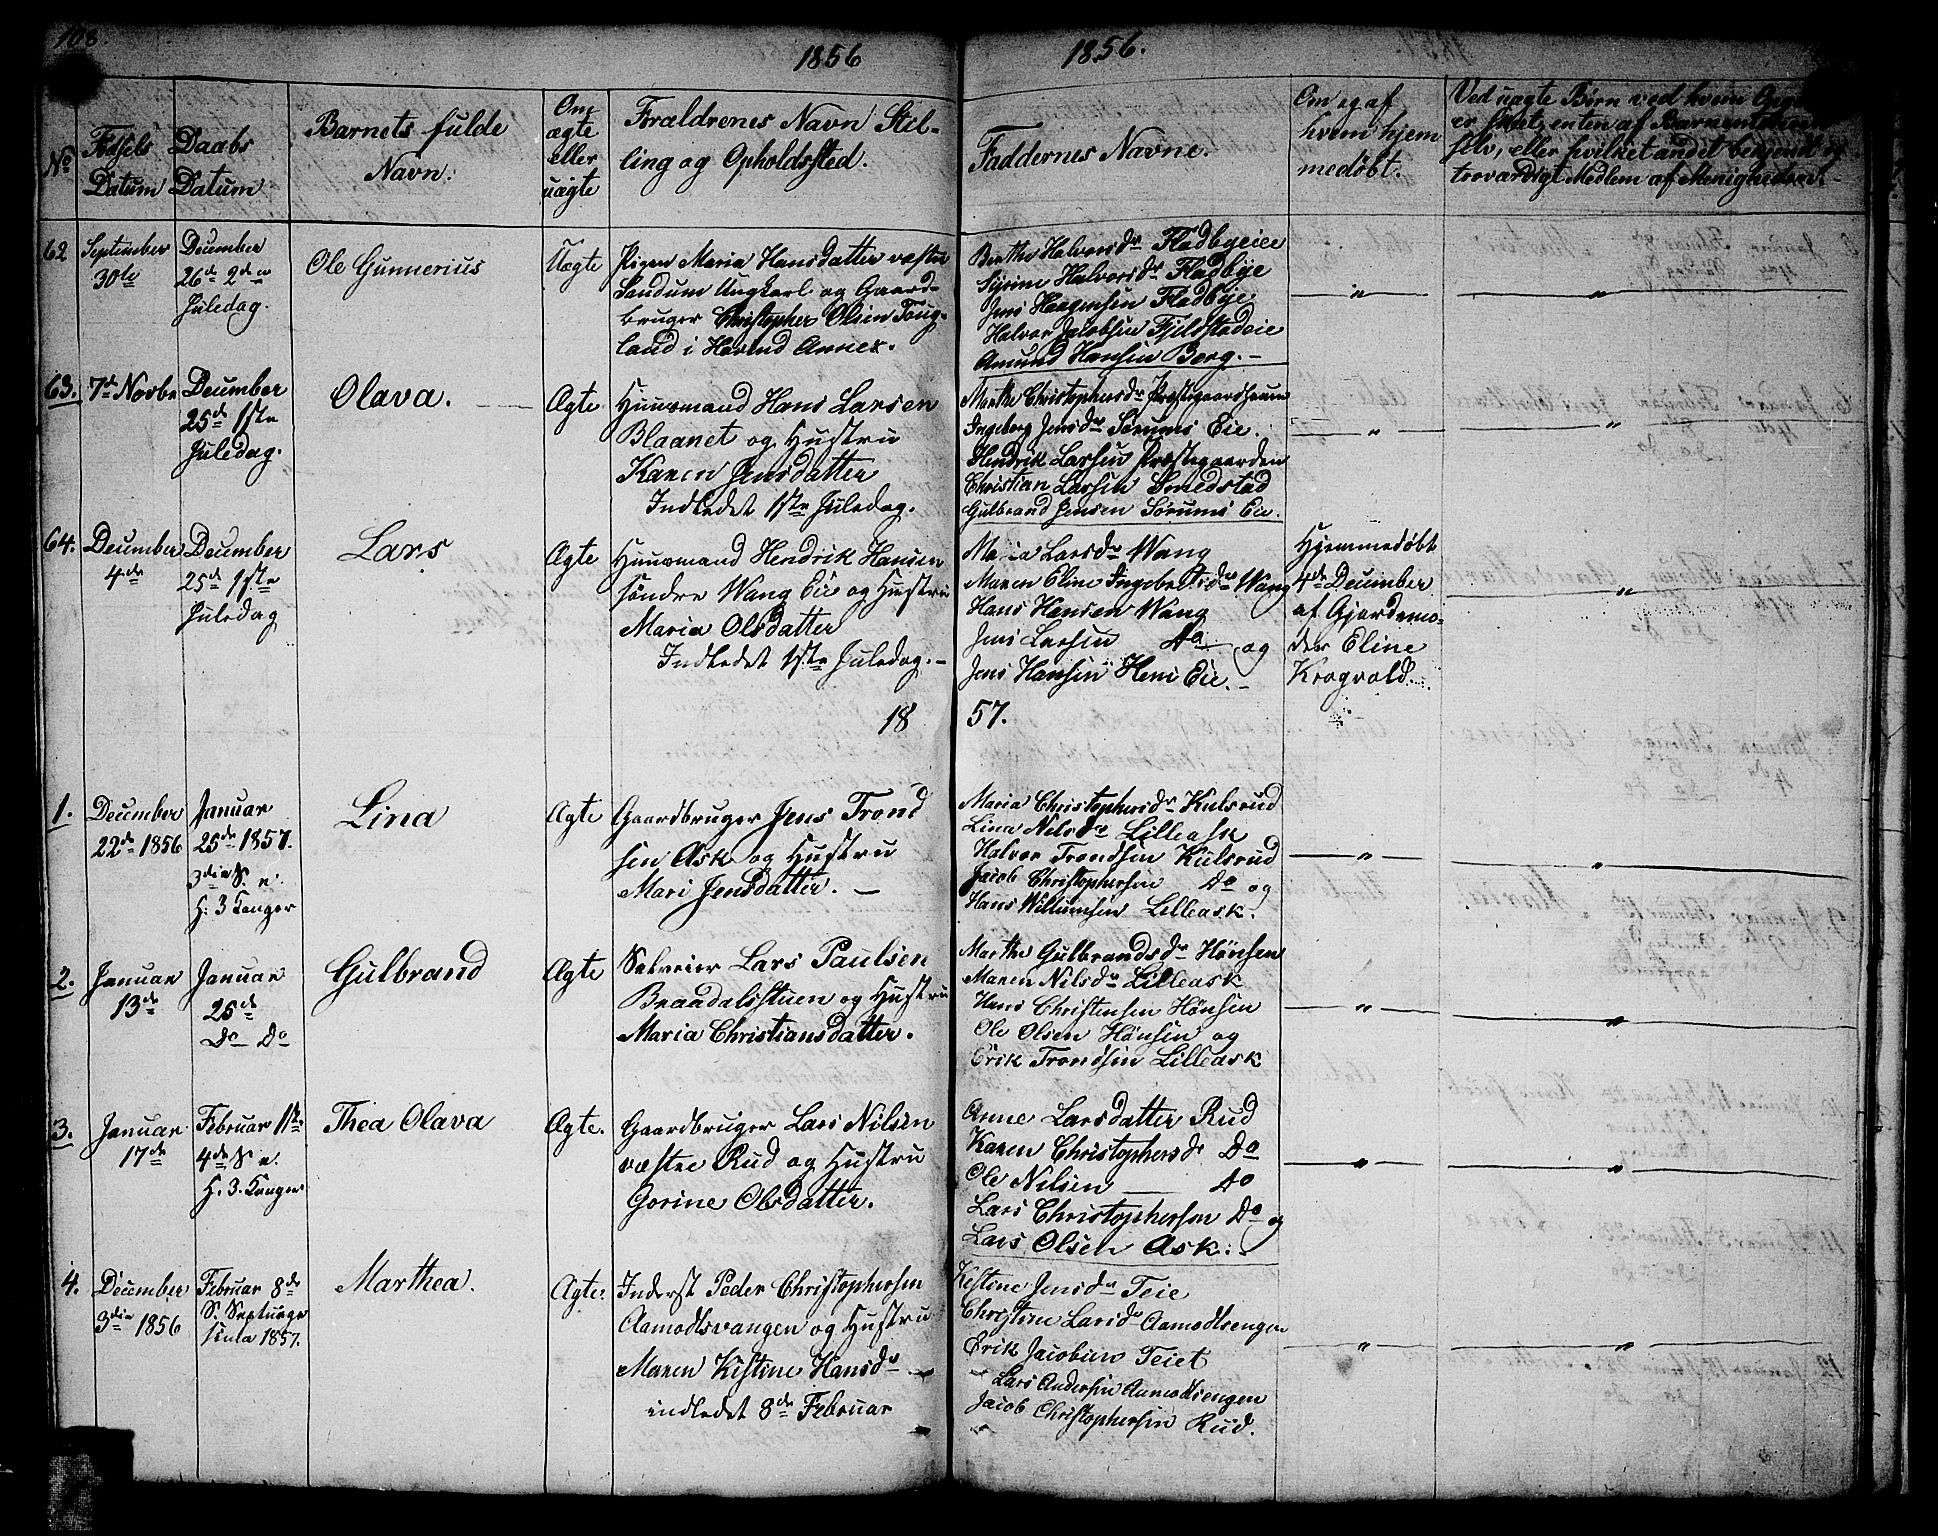 108.
1856
1856.
No
Fødsels Datum
Daabs Datum
Barnets fulde Navn.
Om ægte eller uægte
Forældrenes Navn Stilling og Opholdssted.
Faddernes Navne.
Om og af hvem hjemmedøbt.
Ved uægte Børn ved hvem
er skeet, enten af
selv, eller hvilket andet bekjendt og
troværdigt Medlem af Menigheden.
62
September
30te
December
26de 2den
Juledag.
Ole Gunnerius
Uægte
Pigen Maria Hansdatter vestre
Sandum Ungkarl og Gaard-
bruger Christopher Olsen Foug-
land i Hovind Annex.
Berthe Halvorsdr Fladbyeeie
Syrine Halvorsdr Fladbye
Jens Haagensen Fladbye
Halvor Jacobsen Fjeldstadeie
Amund Hansen Berg. -
"
"
63.
7de Novbr
December
25de 1ste
Juledag.
Olava.
Ægte
Huusmand Hans Larsen
Blaanet og Hustru
Karen Jensdatter
Indledet 1ste Juledag.
Marthe Christophersdr
Ingeborg Jensdr Sørums Eie.
Hendrik Larsen Præstegaarden
Christian Larsen Smedstad
Gulbrand Jensen Sørums Eie.
"
"
64.
December
4de
December
25de 1ste
Juledag
Lars
Ægte
Huusmand Hendrik Hansen
søndre Wang Eie og Hustru
Maria Olsdatter
Indledet 1ste Juledag. -
Maria Larsdr Wang
Maren Eline Ingebretsdr Wang
Hans Hansen Wang
Jens Larsen Do og
Jens Hansen Hem Eie. -
Hjemmedøbt
4de December
af Gjordemo-
der Eline
Krogvold.
"
18
57.
1.
December
22de 1856
Januar
25de 1857.
3die S. e.
H: 3 Konger
Lina
Ægte
Gaardbruger Jens Trond
sen Ask og Hustru
Mari Jensdatter. -
Maria Christophersdr Kulsrud
Lina Nilsdr Lilleask
Halvor Trondsen Kulsrud
Jacob Christophersen Do og
Hans Willumsen Lilleask.
"
"
2.
Januar
13de
Januar
25de
Do Do
Gulbrand
Ægte
Selveier Lars Paulsen
Braadalsstuen og Hustru
Maria Christiansdatter.
Marthe Gulbrandsdr Hønsen
Maren Nilsdr Lilleask
Hans Christensen Hønsen
Ole Olsen Hønsen og
Erik Trondsen Lilleask
"
"
3.
Januar
17de
Februar 1ste
4de S. e.
H. 3. Konger
Thea Olava
Ægte.
Gaardbruger Lars Nilsen
væstre Rud og Hustru
Gorine Olsdatter.
Anne Larsdatter Rud
Karen Christophersdr Do
Ole Nilsen Do
Lars Christophersen Do og
Lars Olsen Ask. -
"
"
4.
December
3die 1856
Februar 8de
S. Septuage
sima 1857.
Marthea.
Ægte.
Inderst Peder Christophersen
Aamodtsvangen og Hustru
Maren Kistine Hansdr
indledet 8de Februar
Kistine Jensdr Teie
Christine Larsdr Aamodtsengen
Erik Jacobsen Teiet
Lars Andersen Aamodtsengen
Jacob Christophersen Rud.
"
"